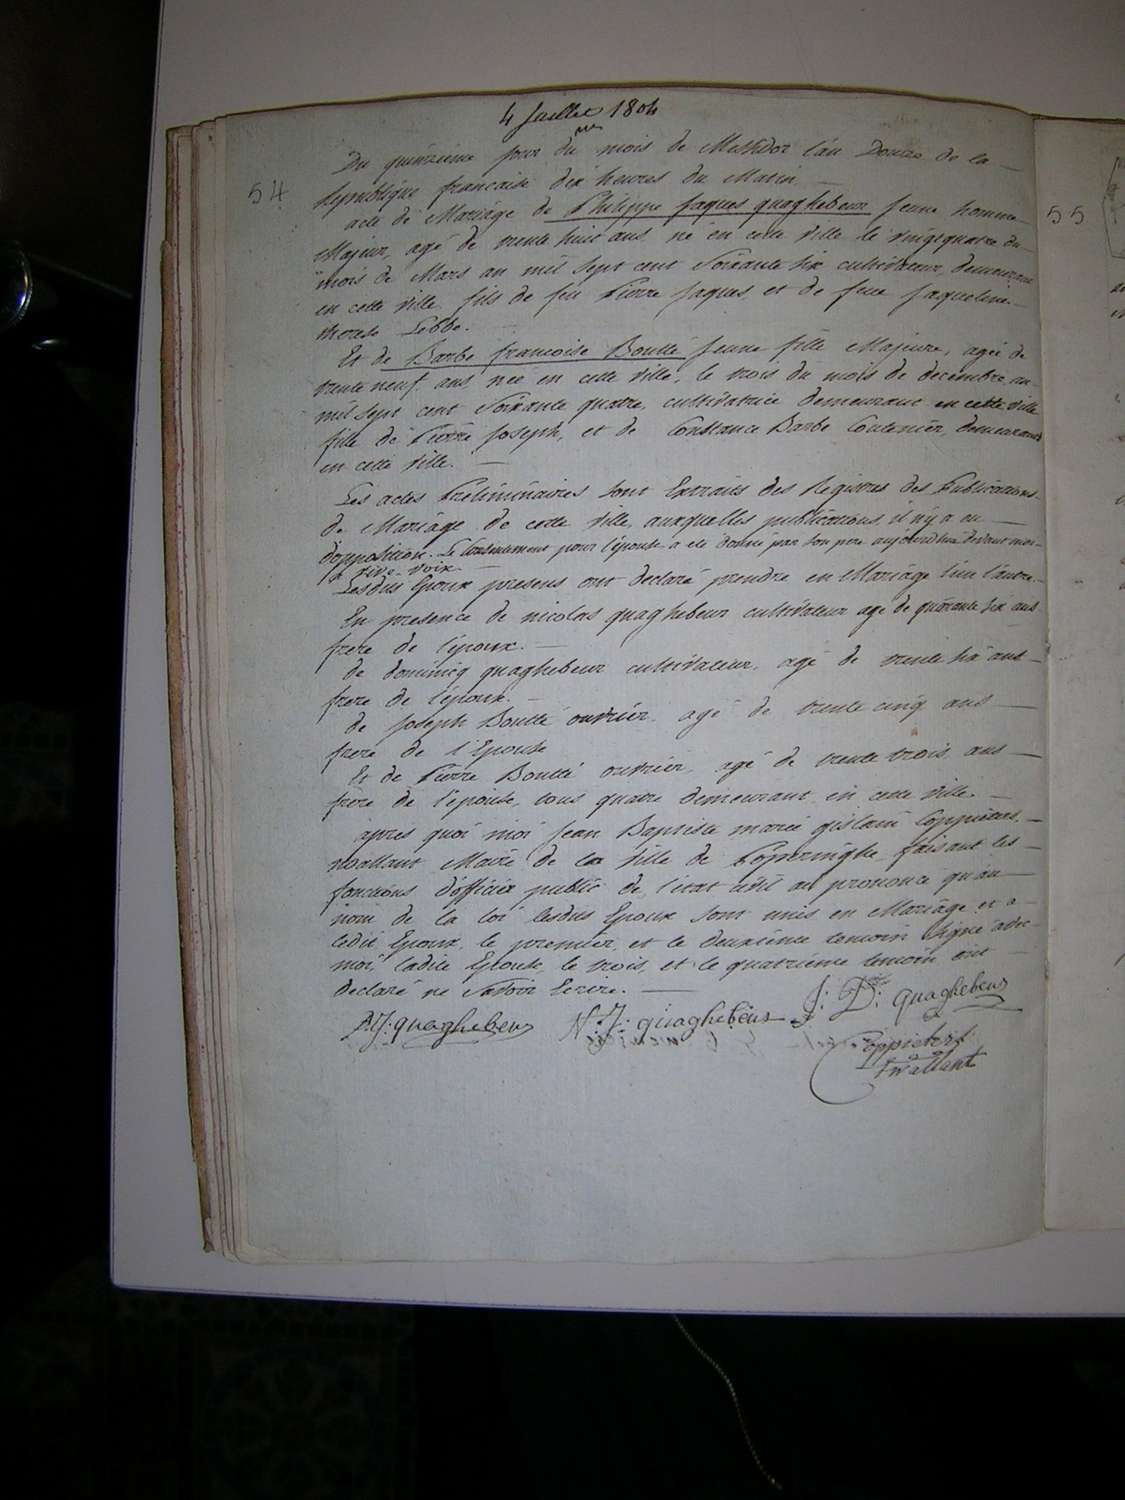 4 Juillet 1804
54
Du quinzieme jour du mois de Messidor l'an Douze de la
Republique francaise dix heures du Matin
acte de Mariage de Philippe Jaques quaghebeur Jeune homme
Majeur, agé de trente huit ans né en cette ville le vingtquatre du
mois de Mars an mil sept cent Soixante six cultivateur, demeurant
en cette ville fils de feu Pierre Jaques et de feue Jaqueline
therese Lebbe.
Et de Barbe francoise Boutté Jeune fille Majeure, agée de
trente neuf ans née en cette ville, le trois du mois de decembre an
mil sept cent Soixante quatre, cultivatrice demeurant en cette ville
fille de Pierre Joseph, et de Constance Barbe Coutenier, demeurant
en cette ville.
Les actes Préliminaires sont Extraits des Registres des Publications
de Mariage de cette ville, auxquelles publications il n'y a eu
d'opposition. Le Consentement pour l'épouse a été donné par son pere aujourd'hui devant moi
de vive voix.
Lesdits Epoux presens ont declaré prendre en Mariage l'un l'autre.
En presence de nicolas quaghebeur cultivateur agé de quarante six ans
frere de l'époux.
de dominicq quaghebeur cultivateur, agé de trente six ans
frere de l'époux.
de Joseph Boutté ouvrier agé de trente cinq ans
frere de l'Epouse
Et de Pierre Boutté ouvrier, agé de trente trois ans
frère de l'épouse, tous quatre demeurant en cette ville.
après quoi moi Jean Baptiste marie gislain Coppieters
twallant Maire de la ville de Poperinghe faisant les
fonctions d'officier public de l'etat civil ai prononcé qu'au
nom de la loi lesdits Epoux sont unis en Mariage et a
ledit Epoux, le premier, et le deuxième temoin signé avec
moi, ladite Epouse, le trois, et le quatrième temoin ont
declaré ne savoir Ecrire.
P:J: quaghebeur N:J: quaghebeur J: D: quaghebeur
Coppieters
twallant
55